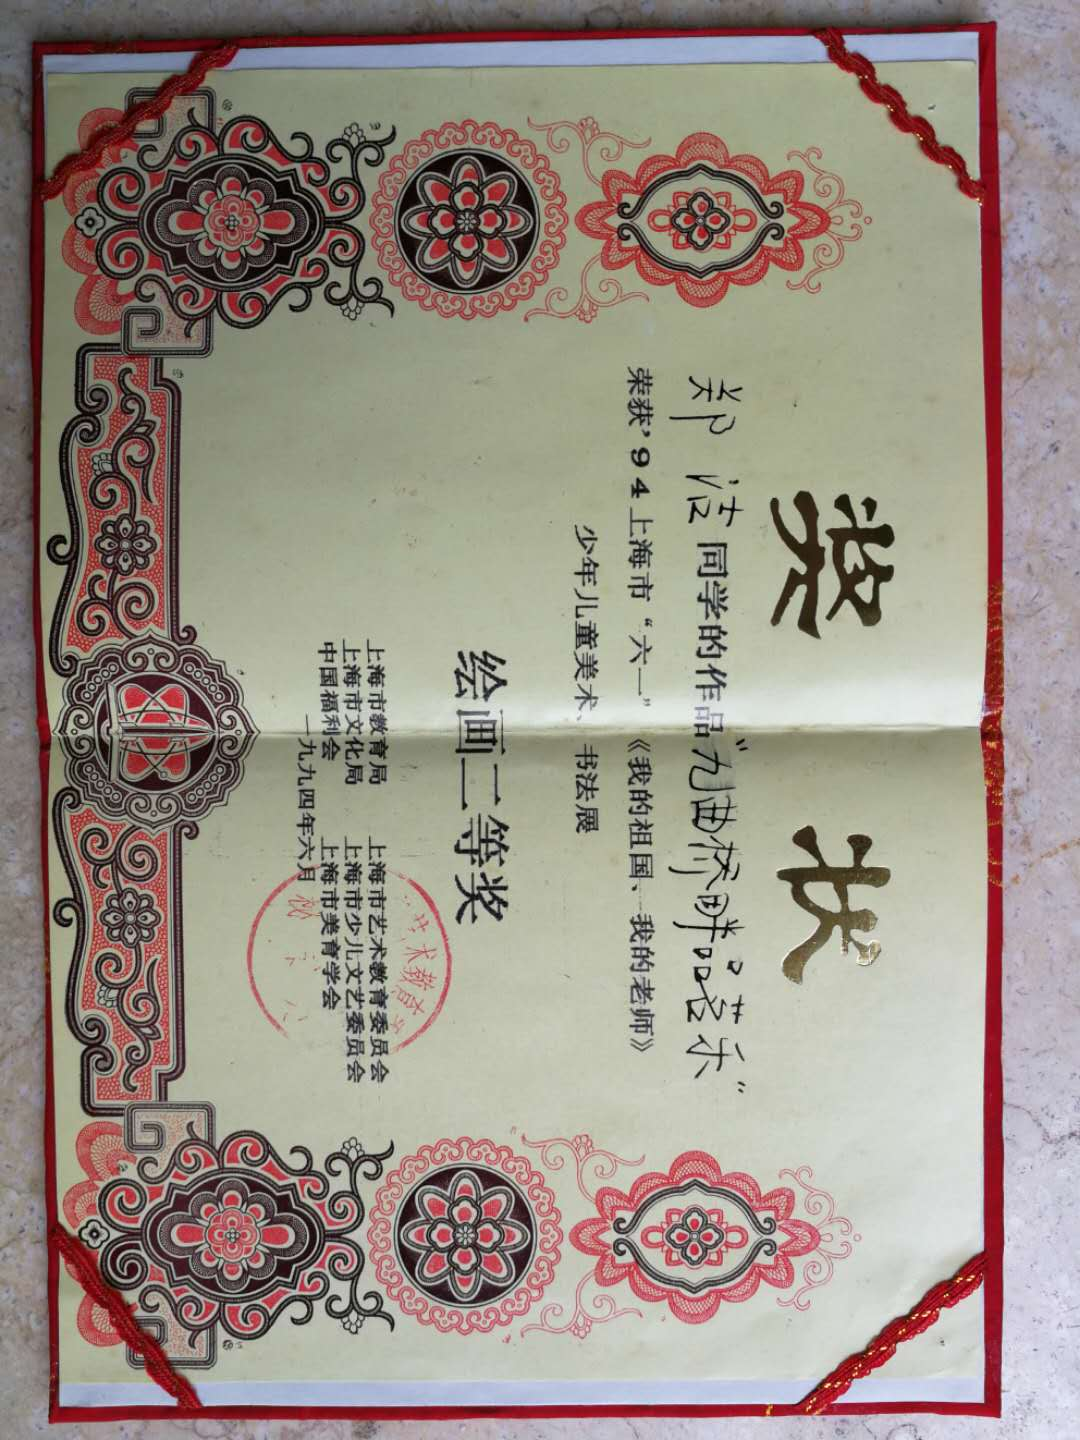 奖状
郑洁同学的作品"九曲桥畔品茗乐"
荣获'94上海市“六一”《我的祖国、我的老师》
少年儿童美术、书法展
绘画二等奖
上海市教育局 上海市艺术教育委员会
上海市文化局 上海市少儿文艺委员会
中国福利会 上海市美育学会
一九九四年六月
艺术教育